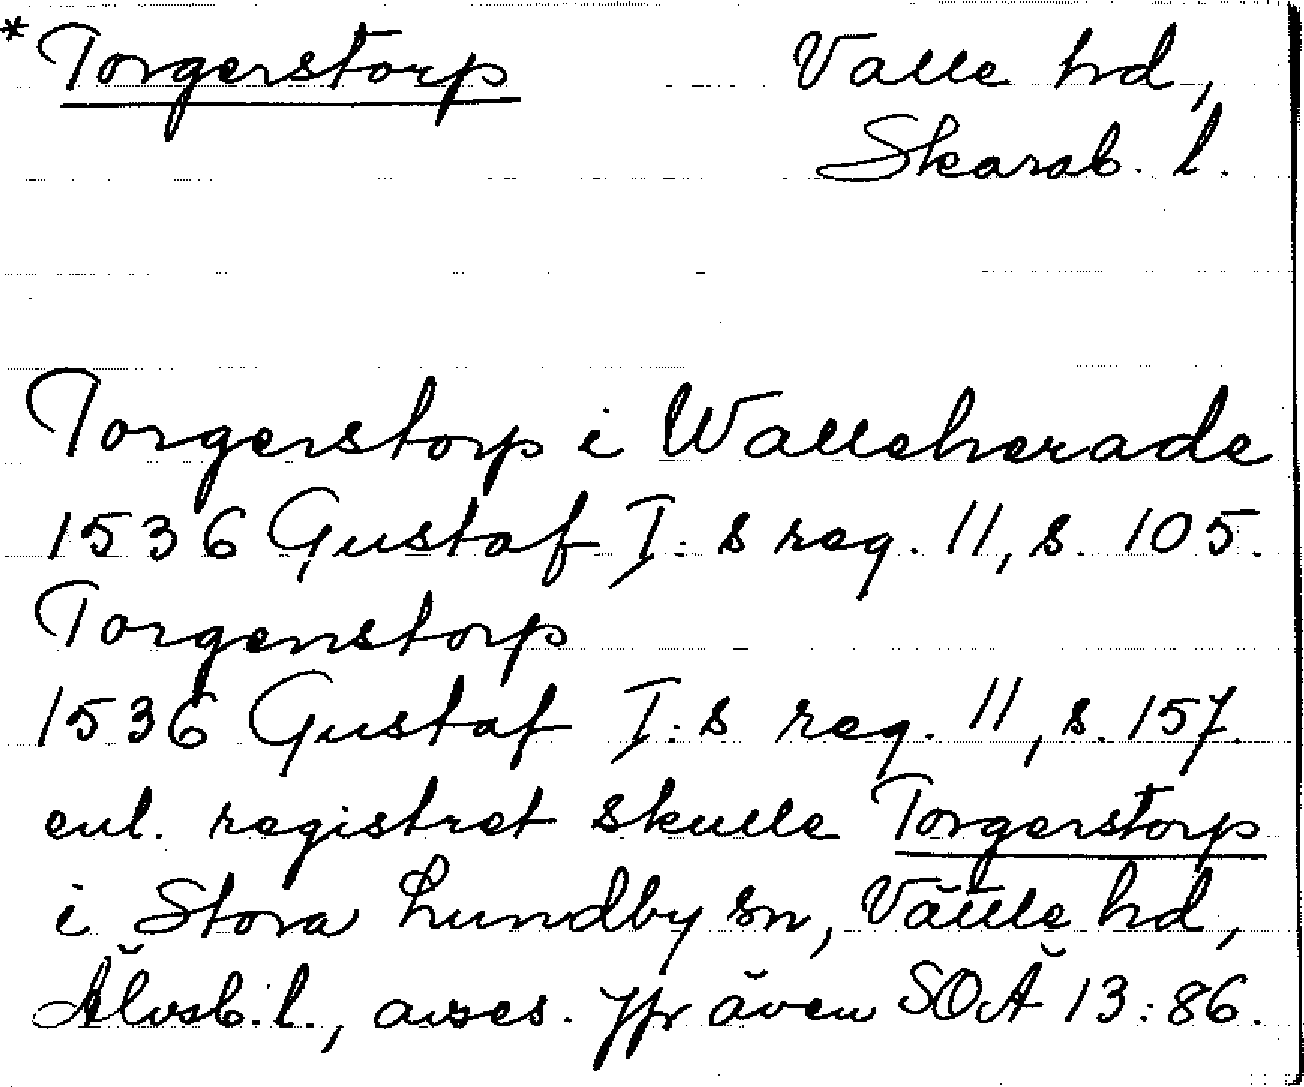 * Torgerstorp Valle hd,
Skarab. l.
Torgerstorp i Walleherade
1536 Gustaf I:s reg. 11, s. 105.
Torgenstorp
1536 Gustaf I:s reg. 11, s. 157.
enl. registret skulle Torgerstorp
i Stora Lundby sn, Vättle hd,
Älvsb. l., avses. Jfr även SOÄ 13:86.